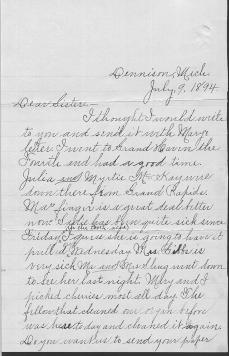 Dennison, Mich.
July, 9, 1894
Dear Sister—
I thought I would write
to you and send it with Mary's
letter. I went to Grand Haven the
Fourth and had a good time.
Julia and Myrtie McKay were
down there from Grand Rapids.
Ma's finger is a great deal better
now. has been quite sick since
(in the tooth ache)
Friday I guess she is going to have it
pulled Wednesday Mrs. is
very sick Mr and Mrs went down
to see her last night. Mary and I
picked cherries most all day. The
fellow that cleaned our organ before
was here to day and cleaned it again.
Do you want us to send your paper